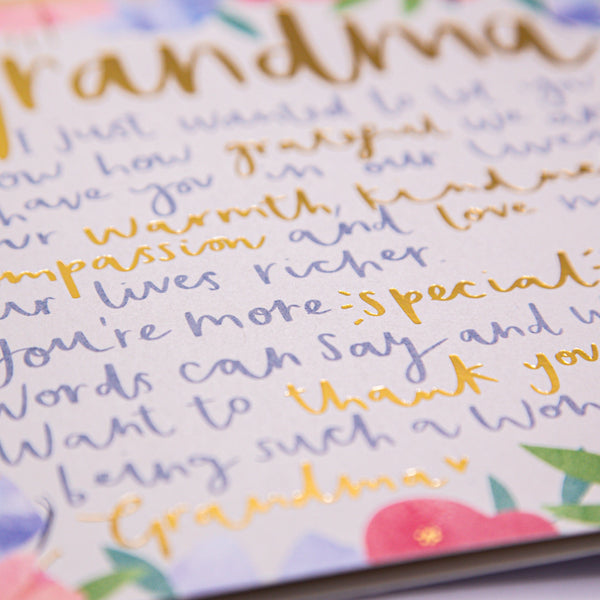 Grandma
I just wanted to let you
how grateful we a
have you in our lives
warmth, kindne
mpassion and love
ur lives richer.
You're more special
words can say and w
want to thank you
being such a won
Grandma